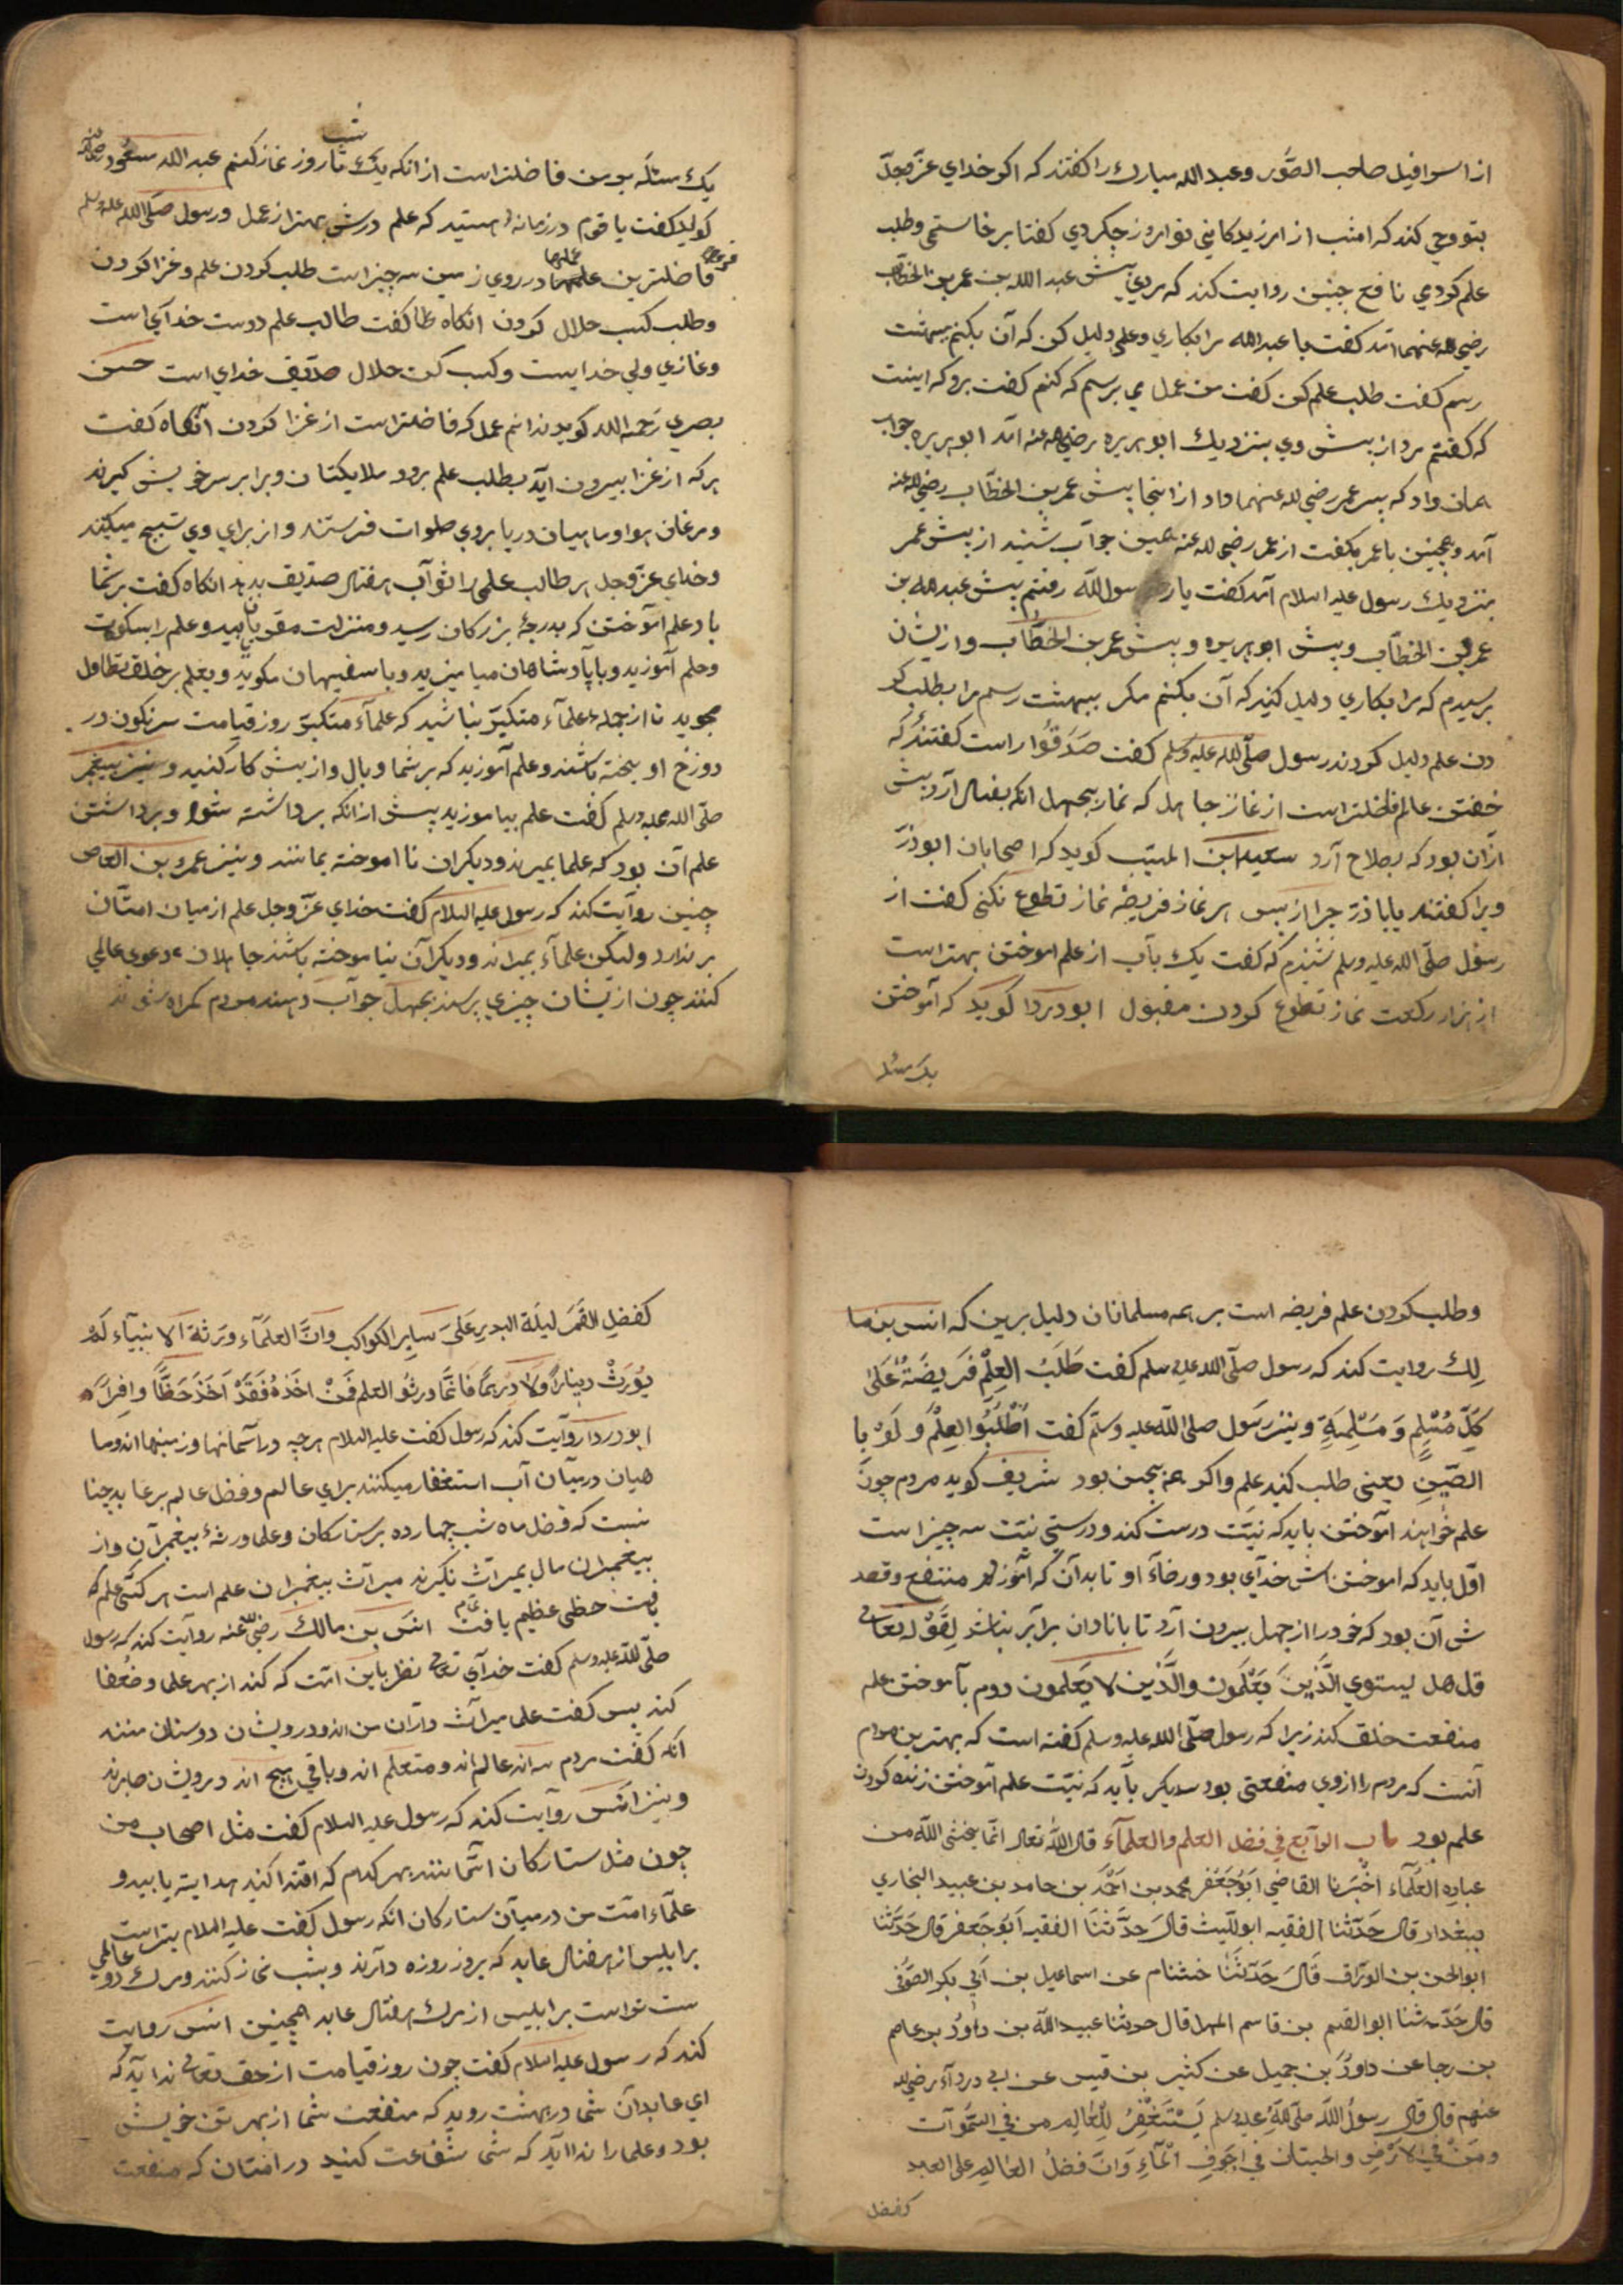 از اسرافیل صاحب الصور و عبد الله مبارک را کفتند که اکر خدای عز و جل
بتو وحی کند که امشب از امر زیدکانی تو امروز چکردی کفتا برخاستمی و طلب
علم کردمی نافع چنین روایت کند که مردی پیش عبد الله بن عمر بن الخطاب
رضی الله عنهما آمد کفت یا عبد الله مرا بکاری و علمی دلیل کن که آن بکنم ببهشت
رسم کفت طلب علم کن کفت من عمل می پرسم که کنم کفت برو که اینست
که کفتم مرد از پیش وی بنزدیک ابو هریره رضی الله عنه آمد ابو هریره جواب
همان داد که پسر عمر رضی الله عنهما داد از اینجا پیش عمر بن الخطاب رضی الله عنه
آمد و همچنین با عمر بکفت از عمر رضی الله عنه همین جواب شنید از پیش عمر
بنزدیک رسول علیه السلام آمد کفت یا رسول الله رفتم پیش عبد الله بن
عمر بن الخطاب و پیش ابو هریره و پیش عمر بن الخطاب و از یشان
پرسیدم که مرا بکاری دلیل کنید که آن بکنم مکر ببهشت رسم مرا بطلب کر
دن علم دلیل کردند رسول صلی الله علیه وسلم کفت صدقوا راست کفتند که
خفتن عالم فاضلتر است از نماز جاهل که نماز بجهل انکه بفساد آرد بیش
از آن بود که بصلاح آرد سعید ابن المسیب کوید که اصحابان ابو ذر
ویرا کفتند یا با ذر چرا از پس هر نماز فریضه نماز تطوع نکنی کفت از
رسول صلی الله علیه وسلم شنیدم که کفت یک باب از علم اموختن بهتر است
از هزار رکعت نماز تطوع کردن مقبول ابو دردا کوید که آموختن
یک مسئله
یک مسئله بر من فاضلتر است از انکه یک شب تا روز نماز کنم عبد الله مسعود رضی الله عنه
کوید کفت یا قوم در زمانه هستید که علم درش بهتر از عمل و رسول صلی الله علیه وسلم
فرموده فاضلترین عملها در روی زمین سه چیز است طلب کردن علم و غزا کردن
و طلب کسب حلال کردن انکاه کفت طالب علم دوست خدای است
و غازی ولی خدایست و کسب کن حلال صدیق خدای است حسن
بصری رحمه الله کوید ندانم عمل که فاضلتر است از غزا کردن آنکاه کفت
هر که از غزا بیرون آید بطلب علم برود ملایکتان ویرا بر سر خویش کیرند
و مرغان هوا و ماهیان دریا بروی صلوات فرستند و از برای وی تسبیح میکنند
و خدای عز و جل هر طالب علمی را ثواب هفتاد صدیق بدهد انکاه کفت بر شما
باد علم آموختن که بدرجۀ بزرکان رسید و منزلت مقربان یابید و علم را بسکونت
و حلم آموزید و با پادشاهان میامیزید و با سفیهان مکوید و بعلم بر خلق تطاول
مجوید تا از جمله علماء متکبر نباشید که علماء متکبر روز قیامت سرنکون در
دوزخ اویخته باشند و علم آموزید که بر شما وبال و از پیش کار کنید و نیز پیغمبر
صلی الله علیه وسلم کفت علم بیاموزید پیش از انکه برداشته شود و برداشتن
علم آن بود که علما بمیرند و دیکران نا اموخته بمانند و نیز عمرو بن العاص
چنین روایت کند که رسول علیه السلام کفت خدای عز و جل علم از میان امتان
بر ندارد ولیکن علماء بمیراند و دیکران نیاموخته باشند جاهلان دعوی عالمی
کنند چون از یشان چیزی پرسند بجهل جواب دهند مردم کمراه شوند
و طلب کردن علم فریضه است بر همه مسلمانان دلیل برین که انس بن ما
لک روایت کند که رسول صلی الله علیه وسلم کفت طَلَبُ العِلْمِ فَریضَةٌ عَلَیٰ
کلِّ مُسْلِمٍ وَ مُسْلِمَةٍ و نیز رسول صلی الله علیه وسلم کفت اُطْلُبُوا العِلْمَ وَلَوْ با
الصّینِ یعنی طلب کنید علم و اکر همه بچین بود شریف کوید مردم چون
علم خواهند آموختن باید که نیت درست کند و درستی نیت سه چیز است
اول باید که اموختنش خدای بود و رضاء او تا بدان که آموزد منتفع و قصد
ش آن بود که خود را از جهل بیرون آرد تا با نادان برابر نباشد لِقَوْله تعالی
قل هل یستوی الَّذینَ یَعْلَمون والَّذین لا یَعلمون دوم بآموختن علم
منفعت خلق کند زیرا که رسول صلی الله علیه وسلم کفته است که بهترین مردم
آنست که مردم را ازوی منفعتی بود سدیکر باید که نیت علم آموختن زنده کردن
علم بود باب الرابع فی فضل العلم والعلماء قال الله تعالی انما یخشی الله من
عباده العلماء اخبرنا القاضی ابو جعفر محمد بن احمد بن حامد بن عبید البخاری
ببغداد قال حدثنا الفقیه ابو اللیث قال حدثنا الفقیه ابو جعفر قال حدثنا
ابو الحسن بن الوراق قال حدثنا خشنام عن اسماعیل بن ابی بکر الصوفی
قال حدثنا ابو القسم بن قاسم قال حدثنا عبید الله بن داود بن عاصم
بن رجا عن داود بن جمیل عن کثیر بن قیس عن ابی درداء رضی الله
عنهم قال قال رسول الله صلی الله علیه وسلم یَسْتَغْفِرُ لِلعالِم من فی السموات
ومَنْ فی الارضِ والحیتان فی اجوفِ المآءِ وانَّ فضلُ العالم علی العابد
کفضل
کفضلِ القمر لیلة البدرِ عَلیٰ سایر الکواکب وانَّ العلمآء ورثة الانبیآء لم
یُورثْ دینارًا ولا درهمًا فانّما ورثوُ العلم فَمنْ اخذهُ فَقَدْ اَخَذَ حَظًّا وافراً
ابو دردا روایت کند که رسول کفت علیه السلام هرچه در آسمانها و زمینها اند و ما
هیان در میان آب استغفار میکنند برای عالم و فضل عالم بر عابد چنا
نست که فضل ماه شب چهارده بر ستارکان و علما ورثۀ پیغمبران و از
پیغمبران مال بمیراث نکیرند میراث پیغمبران علم است هر کسی علم
یافت حظی عظیم یافت تمام انس بن مالک رضی الله عنه روایت کند که رسول
صلی الله علیه وسلم کفت خدای تعالی نظر باین امت که کند از بهر علما و ضعفا
کند پس کفت علما میراث داران من اند و درویشان دوستان منند
آنکه کفت مردم سه اند عالم اند و متعلم اند و باقی هیچ اند درویشان صابرند
و نیز انس روایت کند که رسول علیه السلام کفت مثل اصحاب من
چون مثل ستارکان آسمانند بهر کدام که اقتدا کنید هدایت یابید و
علماء امت من در میان ستارکان انکه رسول کفت علیه السلام بتر است
بر ابلیس از هفتاد عابد که بروز روزه دارند و بشب نماز کنند و مرک عالمی دو
ست تر است بر ابلیس از مرک هفتاد عابد همچنین انس روایت
کند که رسول علیه السلام کفت چون روز قیامت از حق تعالی ندا آید که
ای عابدان شما در بهشت روید که منفعت شما از بهر تن خویش
بود و علما را ندا آید که شما شفاعت کنید در امتان که منفعت